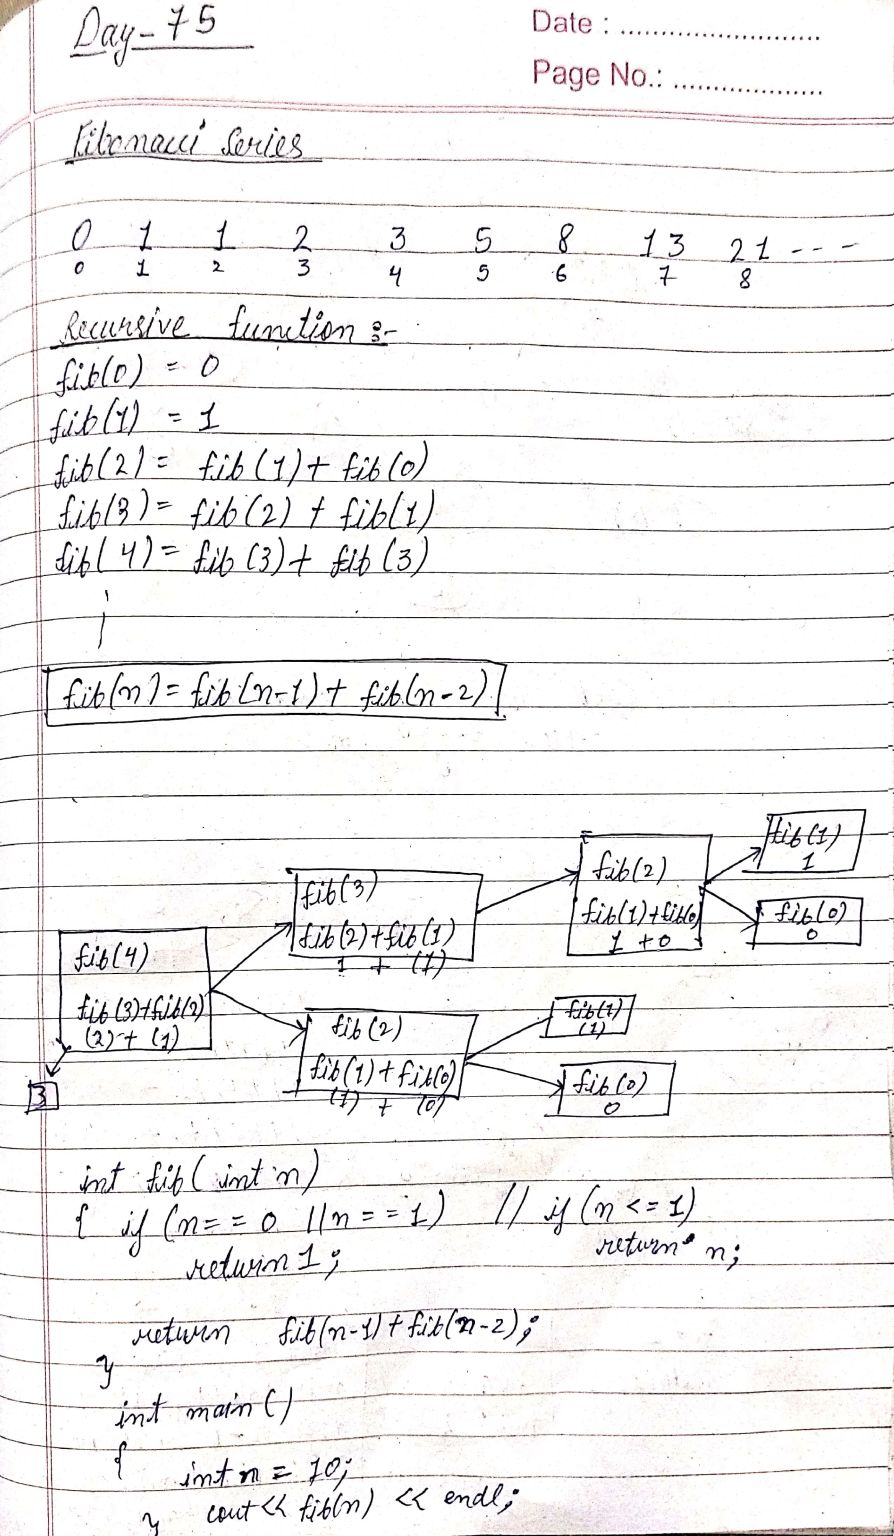 Day-75
Date : ..........................
Page No.: ....................
Fibonacci Series
0 1 1 2 3 5 8 13 21 ---
0 1 2 3 4 5 6 7 8
Recursive function :-
fib(0) = 0
fib(1) = 1
fib(2) = fib(1) + fib(0)
fib(3) = fib(2) + fib(1)
fib(4) = fib(3) + fib(3)
fib(n) = fib(n-1) + fib(n-2)
fib(1)
1
fib(2)
fib(1)+fib(0)
1 + 0
fib(0)
0
fib(3)
fib(2)+fib(1)
1 + (1)
fib(4)
fib(3)+fib(2)
(2) + (1)
3
fib(2)
fib(1)+fib(0)
(1) + (0)
fib(1)
(1)
fib(0)
0
int fib( int n)
{ if (n==0 || n==1) // if (n <= 1)
return 1; return n;
return fib(n-1)+fib(n-2);
}
int main()
{
int n = 10;
cout << fib(n) << endl;
}